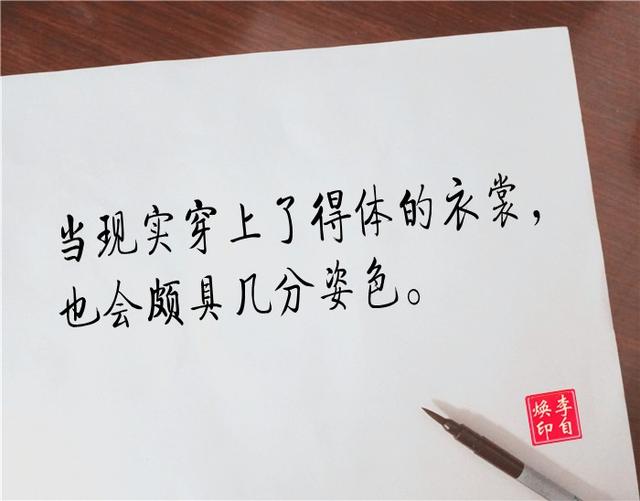 当现实穿上了得体的衣裳，
也会颇具几分姿色。
李自
焕印